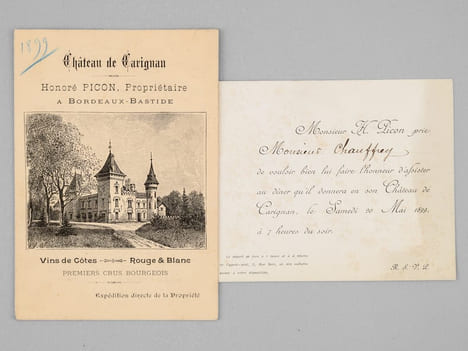 1899
Château de Carignan
Honoré PICON, Propriétaire
A BORDEAUX-BASTIDE
Vins de Côtes Rouge & Blanc
PREMIERS CRUS BOURGEOIS
Expédition directe de la Propriété
Monsieur H. Picon prie
Monsieur Chauffrey
de vouloir bien lui faire l'honneur d'assister
au dîner qu'il donnera en son Château de
Carignan, le Samedi 20 Mai 1899,
à 7 heures du soir.
R. S. V. P.